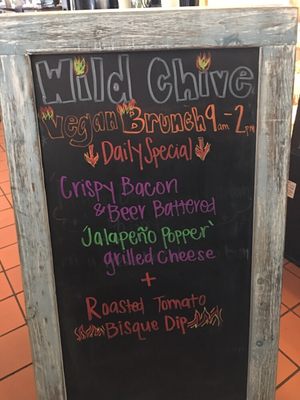 Wild Chive
Vegan Brunch 9am-2pm
Daily Special
Crispy Bacon
& Beer Battered
Jalapeño Popper
grilled Cheese
+
Roasted Tomato
Bisque Dip